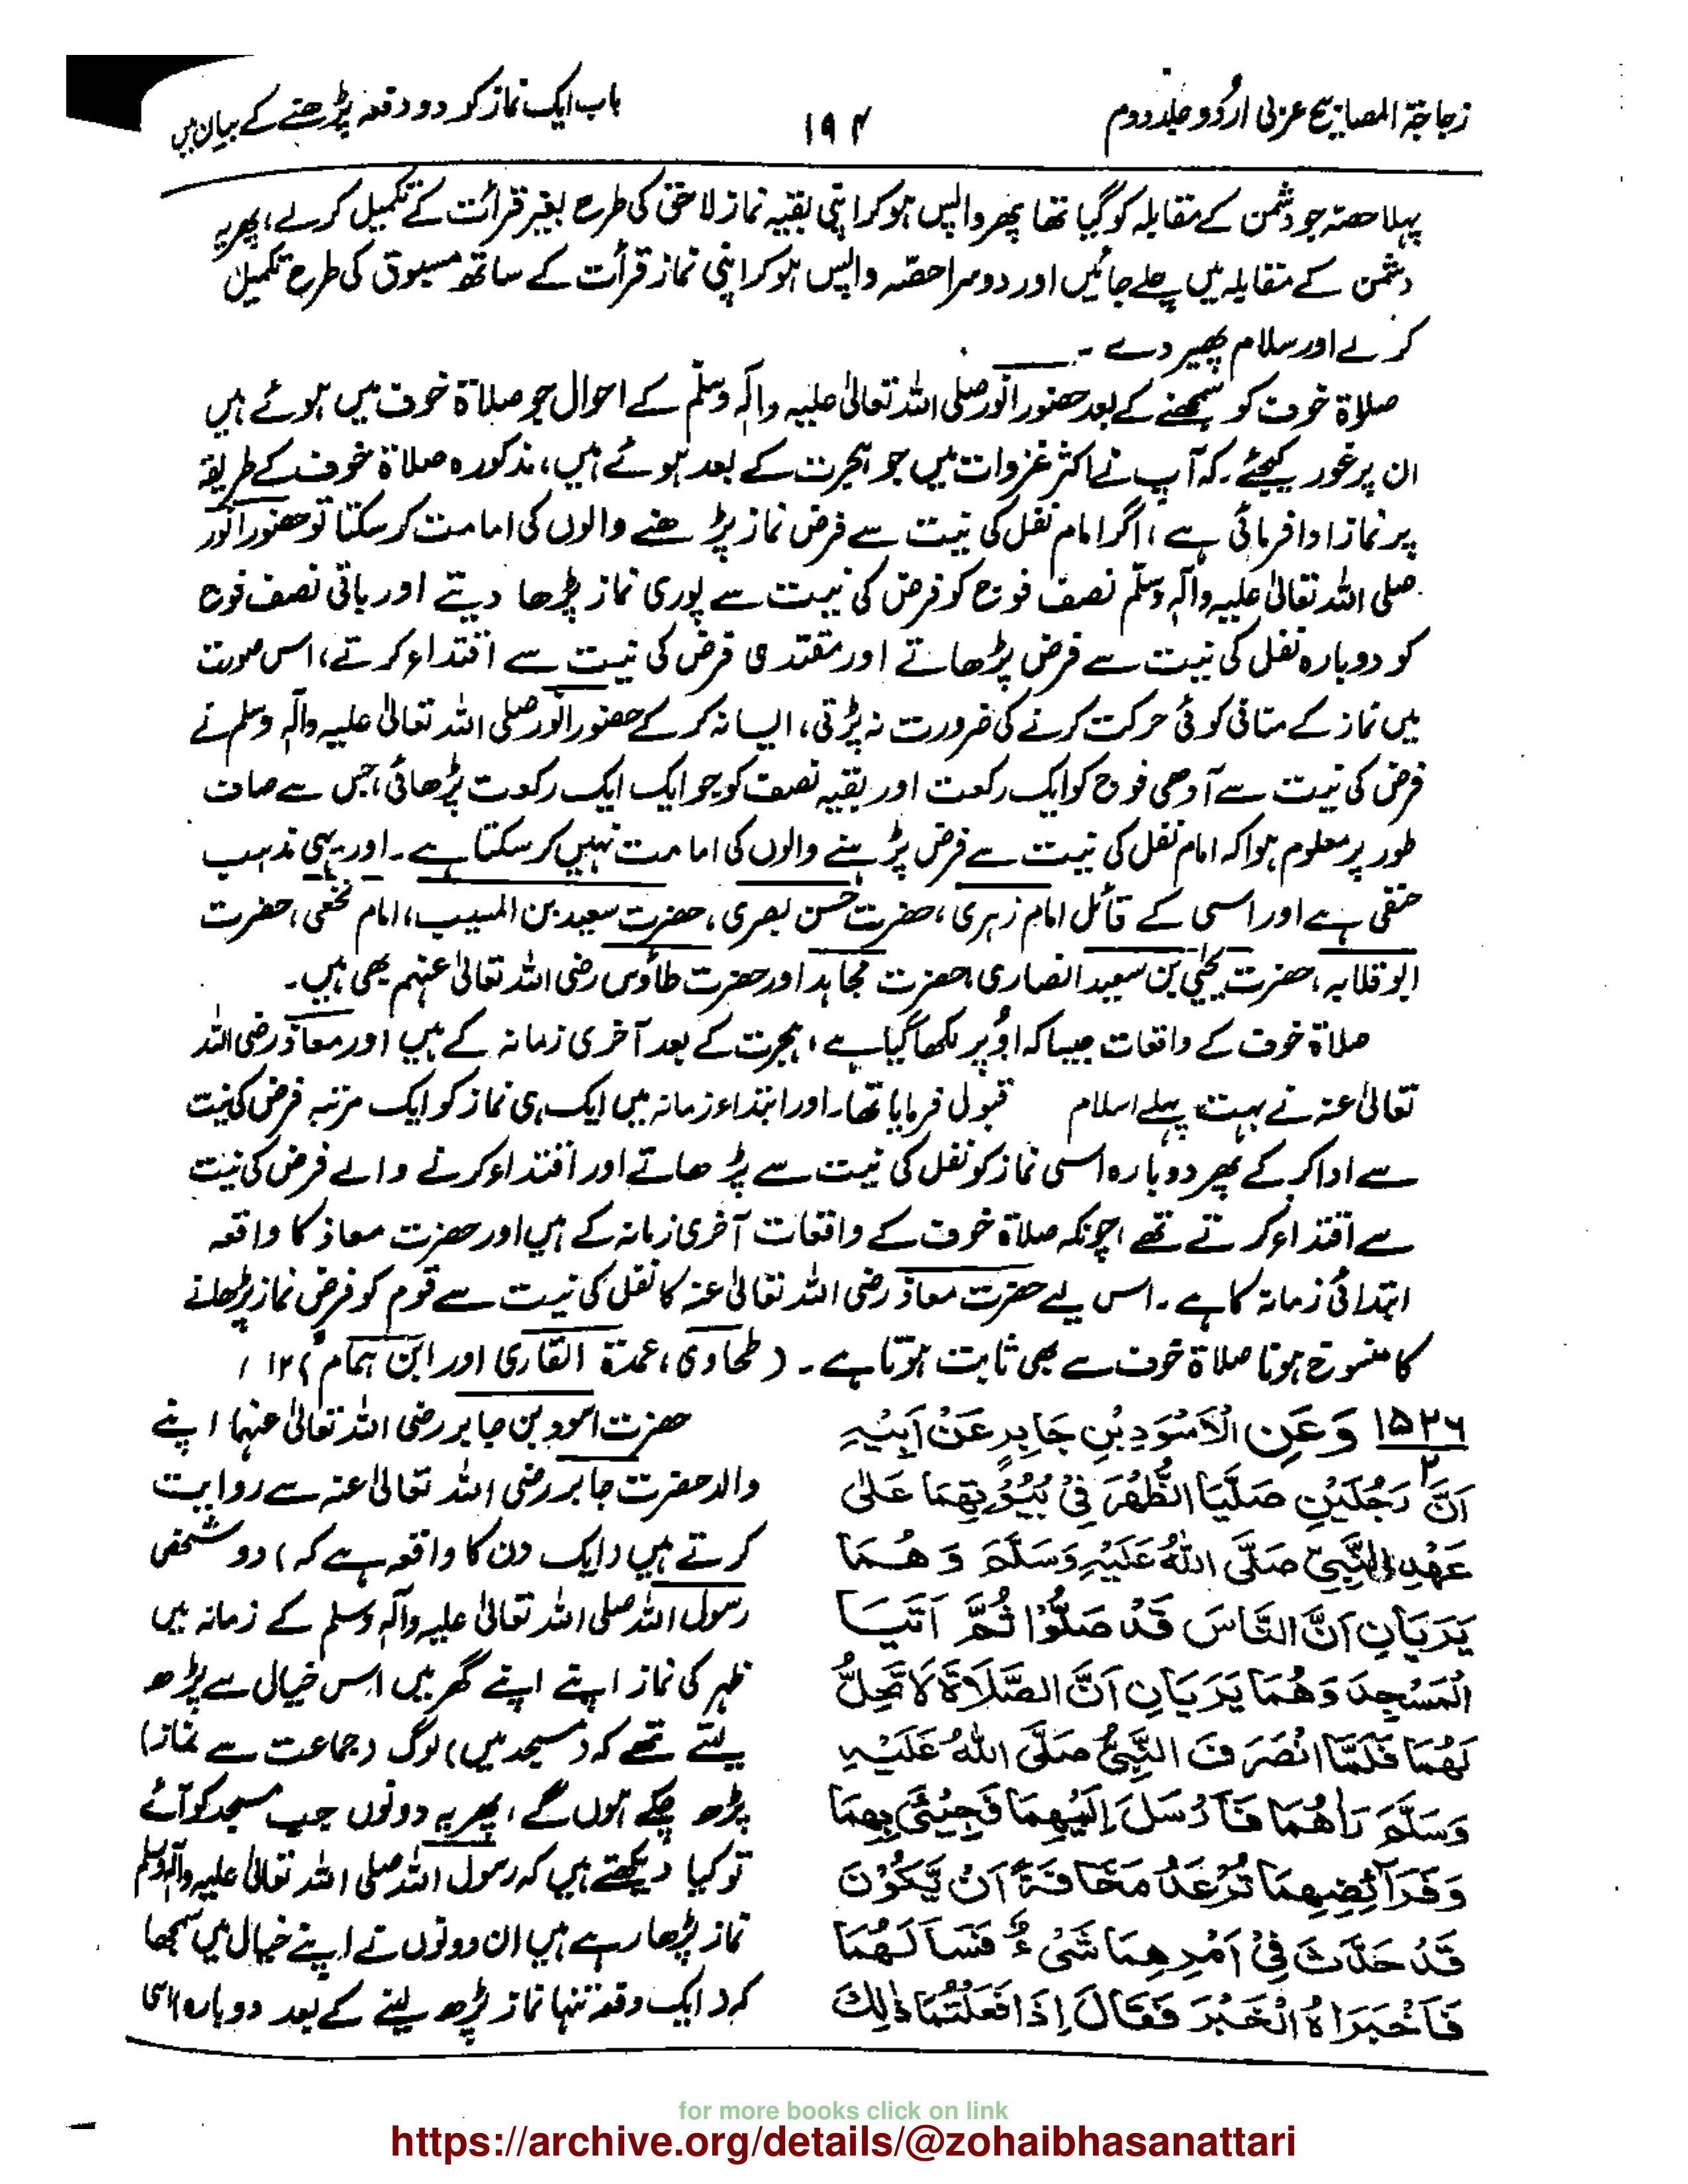 زجاجۃ المصابیح عربی اردُو جلد دوم
۱۹۴
باب ایک نماز کو دو دفعہ پڑھنے کے بیان میں
پہلا حصّہ جو دشمن کے مقابلہ کو گیا تھا پھر واپس ہو کر اپنی بقیہ نماز لاحق کی طرح بغیر قرائت کے تکمیل کرلے، پھر یہ
دشمن کے مقابلہ میں چلے جائیں اور دوسرا حصّہ واپس ہو کر اپنی نماز قرأت کے ساتھ مسبوق کی طرح تکمیل
کرلے اور سلام پھیر دے ۔
صلاۃ خوف کو سمجھنے کے بعد حضور انور صلی اللہ تعالیٰ علیہ وآلہٖ وسلّم کے احوال جو صلاۃ خوف میں ہوئے ہیں
ان پر غور کیجئے ۔ کہ آپ نے اکثر غزوات میں جو ہجرت کے بعد ہوئے ہیں، مذکورہ صلاۃ خوف کے طریقہ
پر نماز ادا فرمائی ہے، اگر امام نفل کی نیت سے فرض نماز پڑھنے والوں کی امامت کر سکتا تو حضور انور
صلی اللہ تعالیٰ علیہ وآلہٖ وسلّم نصف فوج کو فرض کی نیت سے پوری نماز پڑھا دیتے اور باقی نصف فوج
کو دوبارہ نفل کی نیت سے فرض پڑھاتے اور مقتدی فرض کی نیت سے اقتداء کرتے، اس صورت
میں نماز کے منافی کوئی حرکت کرنے کی ضرورت نہ پڑتی، ایسا نہ کر کے حضور انور صلی اللہ تعالیٰ علیہ وآلہٖ وسلم نے
فرض کی نیت سے آدھی فوج کو ایک رکعت اور بقیہ نصف کو جو ایک ایک رکعت پڑھائی، جس سے صاف
طور پر معلوم ہوا کہ امام نفل کی نیت سے فرض پڑہنے والوں کی امامت نہیں کر سکتا ہے ۔ اور یہی مذہب
حنفی ہے اور اسی کے قائل امام زہری، حضرت حسن بصری، حضرت سعید بن المسیب، امام نخعی، حضرت
ابو قلابہ، حضرت یحیٰی بن سعید انصاری، حضرت مجاہد اور حضرت طاؤس رضی اللہ تعالیٰ عنہم بھی ہیں۔
صلاۃ خوف کے واقعات جیسا کہ اُوپر لکھا گیا ہے، ہجرت کے بعد آخری زمانہ کے ہیں اور معاذ رضی اللہ
تعالیٰ عنہ نے بہت پہلے اسلام قبول فرمایا تھا۔ اور ابتداء زمانہ میں ایک ہی نماز کو ایک مرتبہ فرض کی نیت
سے ادا کر کے پھر دوبارہ اسی نماز کو نفل کی نیت سے پڑھاتے اور اقتداء کرنے والے فرض کی نیت
سے اقتداء کرتے تھے، چونکہ صلاۃ خوف کے واقعات آخری زمانہ کے ہیں اور حضرت معاذ کا واقعہ
ابتدائی زمانہ کا ہے ۔ اس لیے حضرت معاذ رضی اللہ تعالیٰ عنہ کا نفل کی نیت سے قوم کو فرض نماز پڑھانے
کا منسوخ ہونا صلاۃ خوف سے بھی ثابت ہوتا ہے ۔ (طحاوی، عمدۃ القاری اور ابن ہمام) ۱۲
۱۵۲۶ وَعَنِ الْاَسْوَدِ بْنِ جَابِرٍ عَنْ اَبِيْهِ
۲
اَنَّ رَجُلَيْنِ صَلَّيَا الظُّهْرَ فِيْ بُيُوْتِهِمَا عَلٰى
عَهْدِ النَّبِيِّ صَلَّى اللّٰهُ عَلَيْهِ وَسَلَّمَ وَهُمَا
يَرَيَانِ اَنَّ النَّاسَ قَدْ صَلَّوْا ثُمَّ اَتَيَا
الْمَسْجِدَ وَهُمَا يَرَيَانِ اَنَّ الصَّلَاةَ لَا تَحِلُّ
لَهُمَا فَلَمَّا انْصَرَفَ النَّبِيُّ صَلَّى اللّٰهُ عَلَيْهِ
وَسَلَّمَ رَاٰهُمَا فَاَرْسَلَ اِلَيْهِمَا فَجِيْئَ بِهِمَا
وَفَرَآئِضِهِمَا تُرْعَدُ مَخَافَةَ اَنْ يَّكُوْنَ
قَدْ حَدَّثَ فِيْ اَمْرِهِمَا شَيْءٌ فَسَاَلَهُمَا
فَاَخْبَرَاهُ الْخَبَرَ فَقَالَ اِذَا فَعَلْتُمَا ذٰلِكَ
حضرت اسود بن جابر رضی اللہ تعالیٰ عنہما اپنے
والد حضرت جابر رضی اللہ تعالیٰ عنہ سے روایت
کرتے ہیں (ایک دن کا واقعہ ہے کہ) دو شخص
رسول اللہ صلی اللہ تعالیٰ علیہ وآلہٖ وسلم کے زمانہ میں
ظہر کی نماز اپنے اپنے گھر میں اس خیال سے پڑھ
لیتے تھے کہ (مسجد میں) لوگ (جماعت سے نماز)
پڑھ چکے ہوں گے، پھر یہ دونوں جب مسجد کو آئے
تو کیا دیکھتے ہیں کہ رسول اللہ صلی اللہ تعالیٰ علیہ وآلہٖ وسلم
نماز پڑھا رہے ہیں ان دونوں نے اپنے خیال میں سمجھا
کہ (ایک دفعہ تنہا نماز پڑھ لینے کے بعد دوبارہ اسی
for more books click on link
https://archive.org/details/@zohaibhasanattari